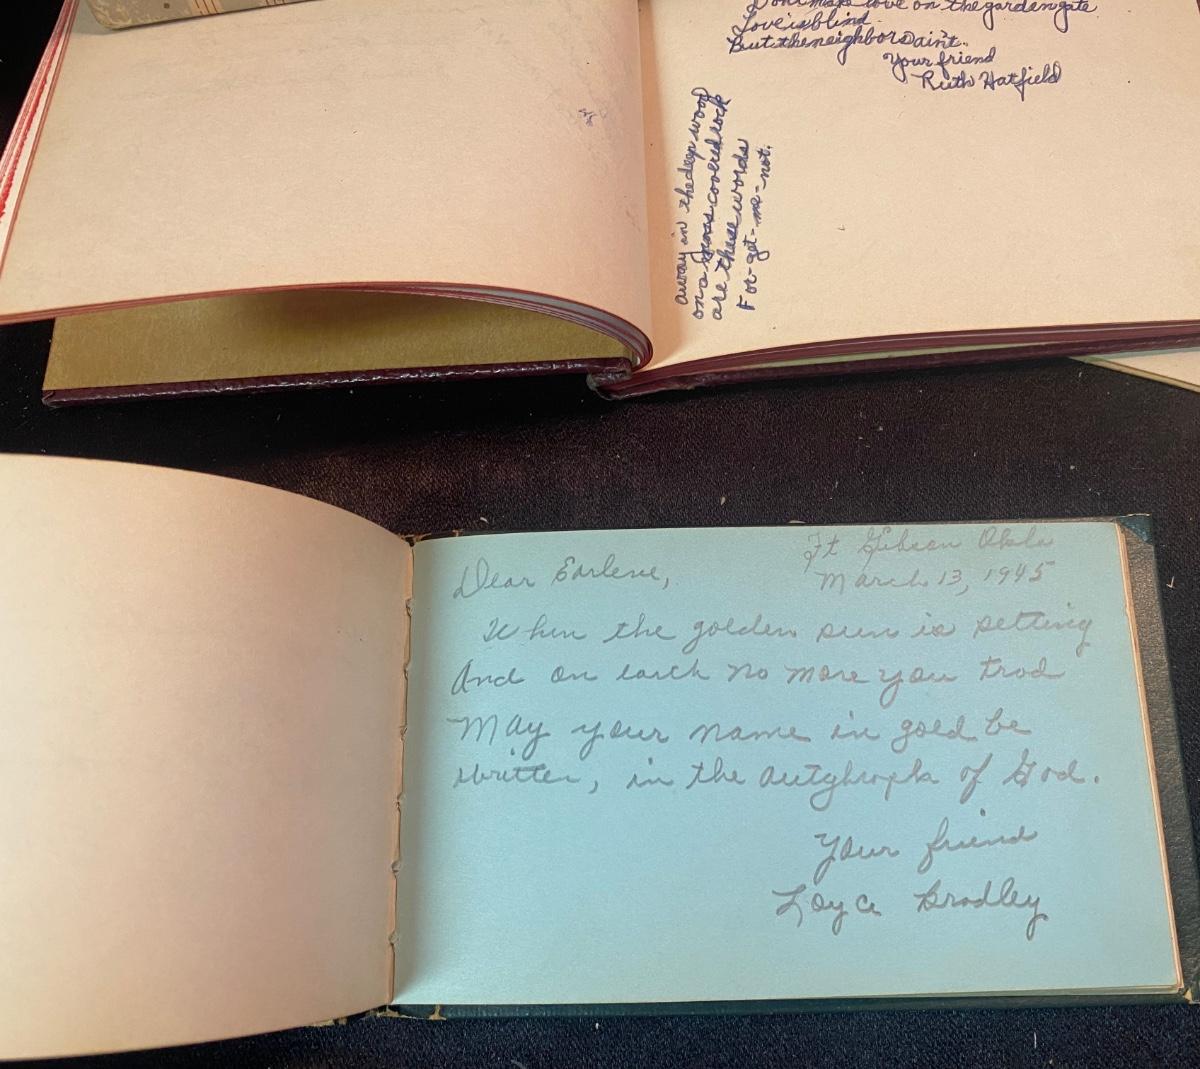 Don't make love on the garden gate
Love is blind.
But the neighbors ain't.
Your friend
Ruth Hatfield
away in the deep wood
on a moss covered rock
are these words
For-get-me-not.
Ft Gibson Okla
March 13, 1945
Dear Earlene,
When the golden sun is setting
And on earth no more you trod
May your name in gold be
written, in the autghroph of God.
Your friend
Loyce Bradley